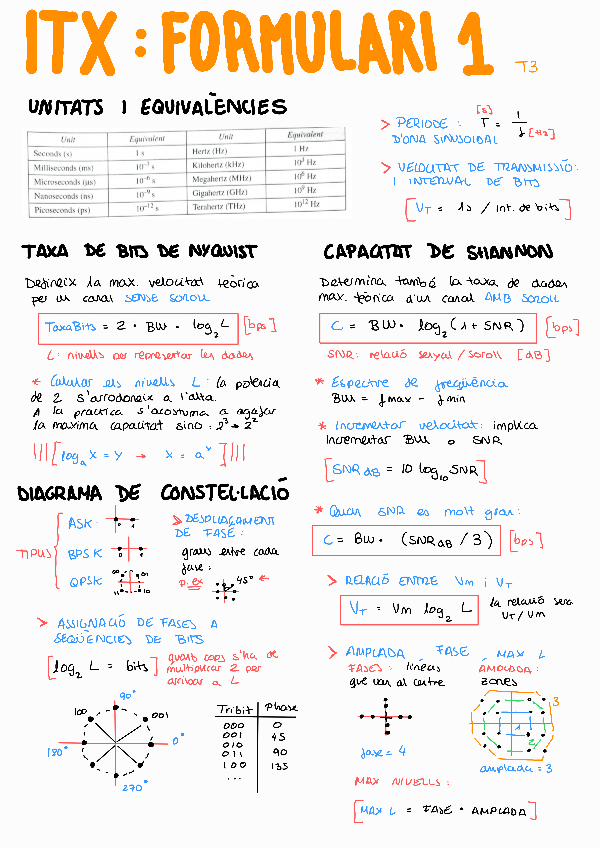 ITX : FORMULARI 1 T3
UNITATS I EQUIVALÈNCIES
Unit Equivalent Unit Equivalent
Seconds (s) 1 s Hertz (Hz) 1 Hz
Milliseconds (ms) 10⁻³ s Kilohertz (kHz) 10³ Hz
Microseconds (μs) 10⁻⁶ s Megahertz (MHz) 10⁶ Hz
Nanoseconds (ns) 10⁻⁹ s Gigahertz (GHz) 10⁹ Hz
Picoseconds (ps) 10⁻¹² s Terahertz (THz) 10¹² Hz
> PERIODE : [s] T = 1 / f [Hz]
D'ONA SINUSOIDAL
> VELOCITAT DE TRANSMISSIÓ:
I INTERVAL DE BITS
[V_T = 1s / int. de bits]
TAXA DE BITS DE NYQUIST
Defineix la max. velocitat teòrica
per un canal SENSE SOROLL
TaxaBits = 2 · BW · log₂ L [bps]
L: nivells per representar les dades
* Calcular els nivells L: la potència
de 2 s'arrodoneix a l'alta.
A la practica s'acostuma a agafar
la maxima capacitat sino : 2³ → 2²
|||[logₐ X = Y → X = a^Y]|||
CAPACITAT DE SHANNON
Determina també la taxa de dades
max. teòrica d'un canal AMB SOROLL
C = BW · log₂ (1 + SNR) [bps]
SNR: relació senyal / soroll [dB]
* Espectre de freqüència
BW = fmax - fmin
* Incrementar velocitat: implica
incrementar BW o SNR
[SNR dB = 10 log₁₀ SNR]
* Quan SNR es molt gran:
C = BW · (SNR dB / 3) [bps]
> RELACIÓ ENTRE Vm i V_T
V_T = Vm log₂ L
la relació sera
V_T / Vm
> AMPLADA, FASE i MAX L
FASES: línies
que van al centre
fase = 4
AMPLADA:
zones
1
2
3
amplada = 3
MAX NIVELLS :
[MAX L = FASE · AMPLADA]
DIAGRAMA DE CONSTEL·LACIÓ
TIPUS
ASK:
BPSK
QPSK:
00
01
11
10
> DESPLAÇAMENT
DE FASE:
graus entre cada
fase :
p. ex
45°
> ASSIGNACIÓ DE FASES A
SEQÜÈNCIES DE BITS
[log₂ L = bits]
quants cops s'ha de
multiplicar 2 per
arribar a L
90°
100
001
180°
0°
270°
Tribit Phase
000 0
001 45
010
011 90
100 135
...